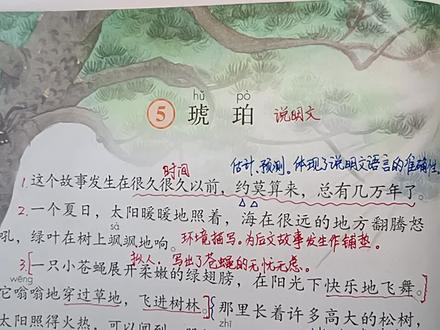 hǔ pò
5 琥 珀 说明文
时间 估计、预测。体现了说明文语言的准确性。
1. 这个故事发生在很久很久以前,约莫算来,总有几万年了。
2. 一个夏日,太阳暖暖地照着,海在很远的地方翻腾怒
sà
吼,绿叶在树上飒飒地响。环境描写。为后文故事发生作铺垫。
拟人,写出了苍蝇的无忧无虑。
3. 一只小苍蝇展开柔嫩的绿翅膀,在阳光下快乐地飞舞。
wēng
它嗡嗡地穿过草地,飞进树林。那里长着许多高大的松树,
zhī
太阳照得火热,可以闻到